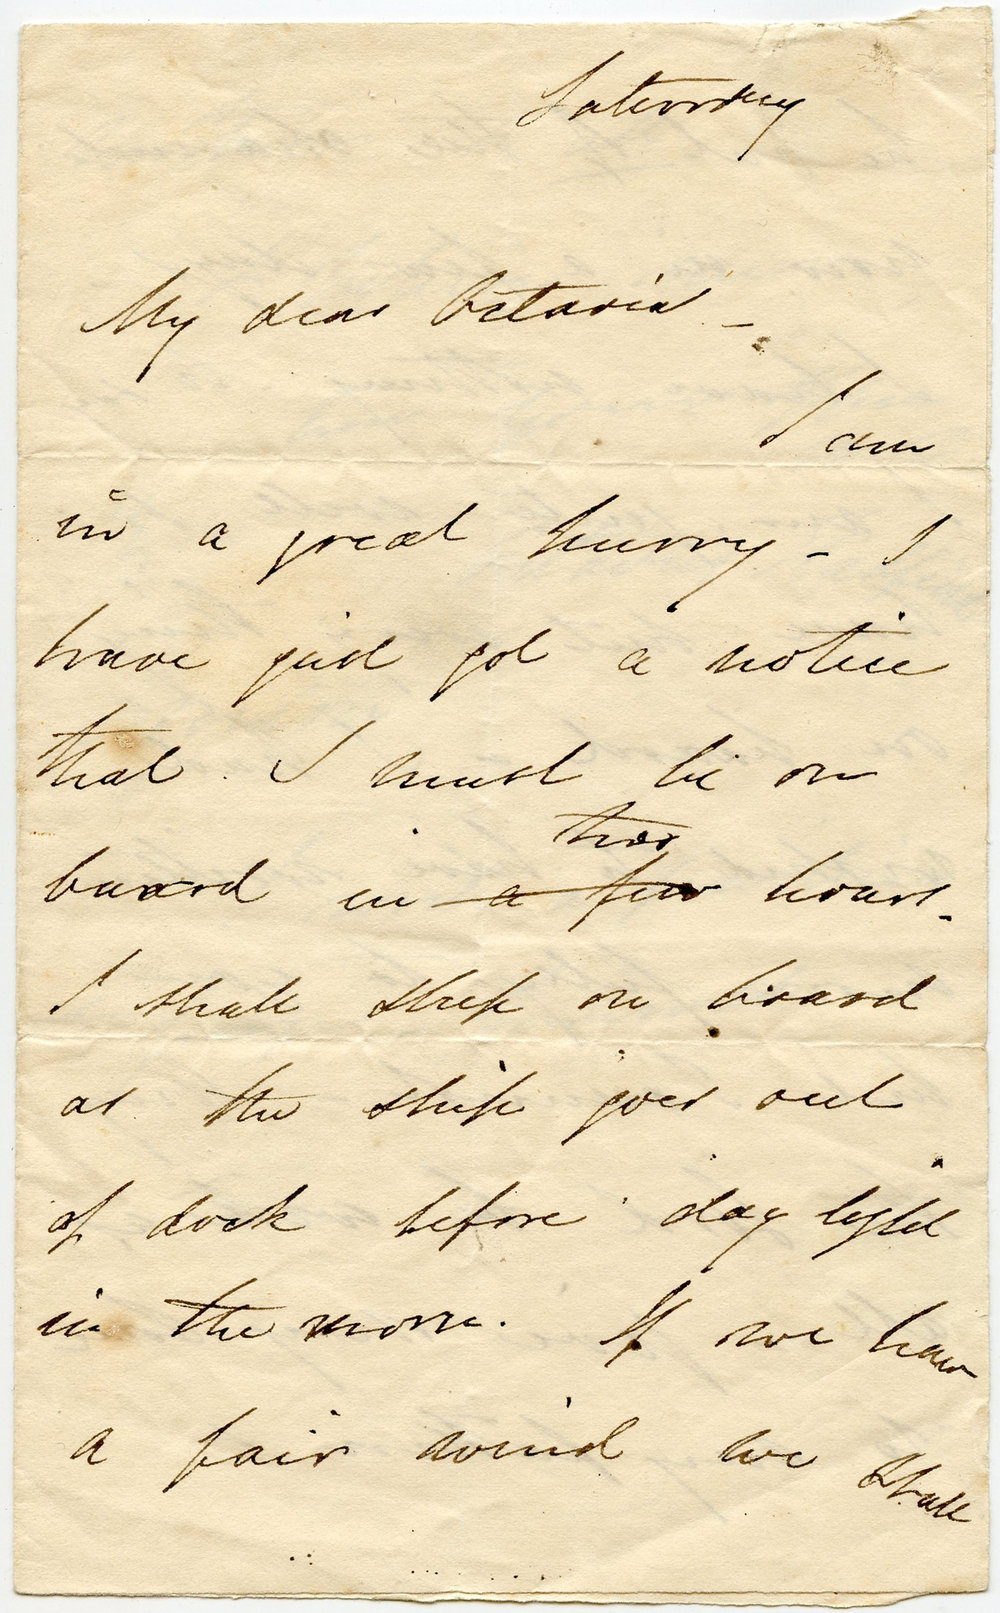 Saturday
My dear Octavia -
I am
in a great hurry - I
have just got a notice
that I must be on
board in ~~a few~~ two hours.
I shall sleep on board
as the ship goes out
of dock before day light
in the morn. If we have
a fair wind we shall